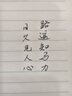 路遥知马力
日久见人心